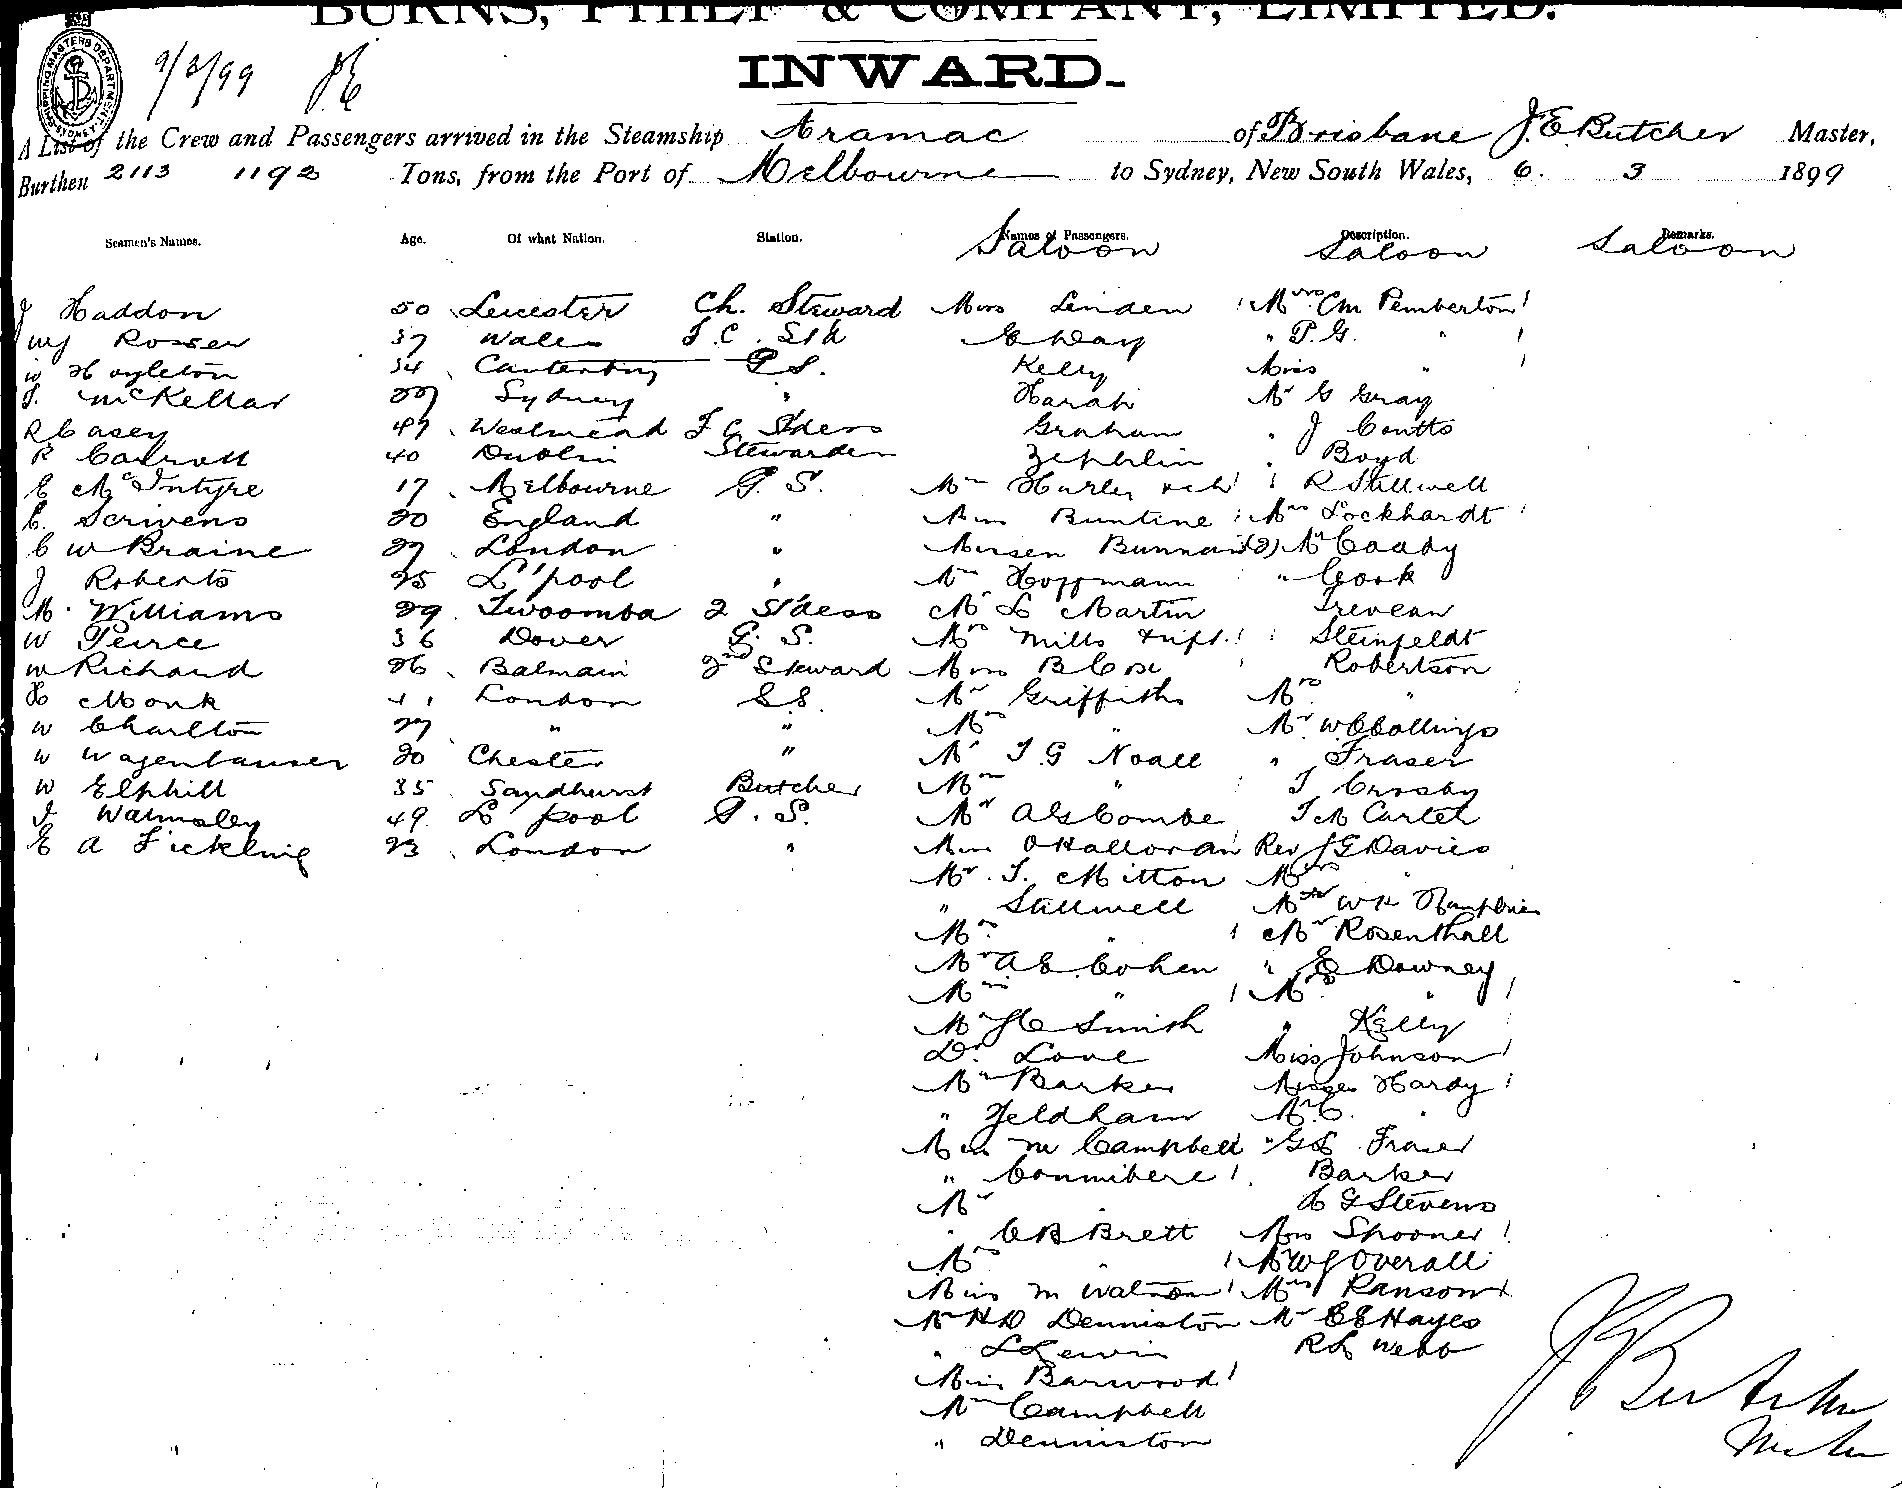 BURNS, PHILP & COMPANY, LIMITED.
INWARD.
SHIPPING MASTERS DEPARTMENT SYDNEY
9/3/99
A List of the Crew and Passengers arrived in the Steamship Aramac of Brisbane J.E. Butcher Master,
Burthen 2113 1192 Tons, from the Port of Melbourne to Sydney, New South Wales, 6. 3 1899
Seamen's Names. Age. Of what Nation. Station. Names of Passengers. Description. Remarks.
Saloon Saloon Saloon
J Haddon 50 Leicester Ch. Steward Miss Linden Mrs CM Pemberton
Wales Day " P.G. "
34 Canterbury G.S. Kelly Miss "
McKellar Sydney " Mr G Gray
R Casey 47 Westmead Graham " J Coutts
R Carroll 40 Dublin Stewardess Boyd
E McIntyre 17 Melbourne G.S. Mrs Hurley R Stillwell
C. Scrivens 20 England " Miss Buntine Mrs Lockhardt
C W Braine 27 London " Misses (2) Mr Coady
J Roberts 25 L'pool " Mrs Hoffmann " Cook
M. Williams 29 Twoomba 2 S'dess Mr L Martin Trevean
W Peirce 36 Dover G.S. Mrs Mills & inft. Steinfeldt
W Richard 26 Balmain 2nd Steward Miss B Cox Robertson
H Monk London S.S. Mr Griffiths Mrs "
W Charlton 27 " " Mrs " Mr W C Collings
W Wagenhauser 20 Chester " Mr T G Noall " Fraser
W Elphill 35 Sandhurst Butcher Mrs " T Crosby
Walmsley 49 L'pool G.S. Mr A G Combe T M Carter
E A Fickling 23 London " Miss O'Halloran Rev J G Davies
Mr T. Mitton Mrs "
" Stillwell
Mrs " Mr Rosenthall
Mr A E Cohen " E Downey
" Mrs "
Mr Smith " Kelly
Dr Love Miss Johnson
Mr Barker Misses Hardy
" Yeldham Mr C. "
Miss M Campbell " G L Fraser
" Connibere Barker
Mr G Stevens
" C B Brett Miss Spooner
Mrs " Mr W J Overall
Miss M Watson Mrs Ransom
Mr H D Denniston Mr E E Hayes
" L Lewin R L Webb
Miss Barwood
Mr Campbell
" Denniston
J E Butcher
Master